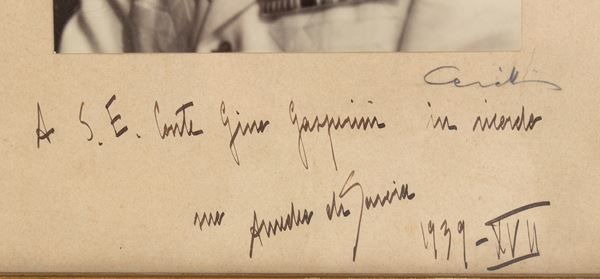 A S. E. Conte Gino Gasperini in ricordo
Amedeo di Savoia
1939 - XVII